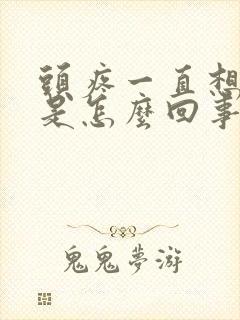 頭疼一直想
是怎麼回事
鬼鬼夢游